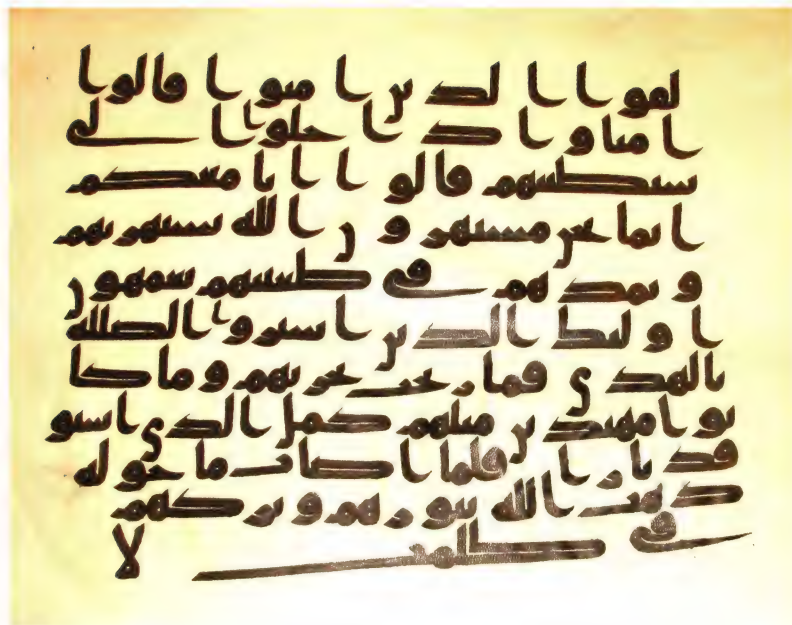 لقوا الذين امنوا قالوا
امنا واذا خلوا الى
شيطينهم قالوا انا معكم
انما نحن مستهزون الله يستهزئ بهم
و يمدهم في طغينهم يعمهون
اولئك الذين اشتروا الضللة
بالهدى فما ربحت تجرتهم وما كا
نوا مهتدين مثلهم كمثل الذي استو
قد نارا فلما اضات ما حوله
ذهب الله بنورهم وتركهم
في ظلمت لا